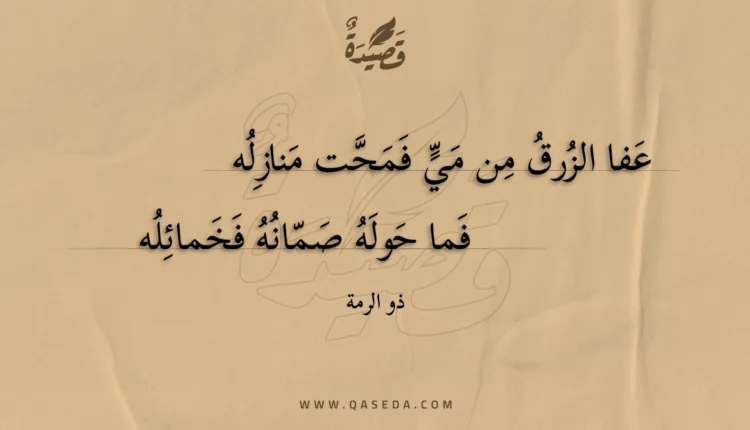 قَصِيدَةٌ
عَفا الزُرقُ مِن مَيٍّ فَمَحَّت مَنازِلُه
فَما حَولَهُ صَمّانُهُ فَخَمائِلُه
ذو الرمة
WWW.QASEDA.COM